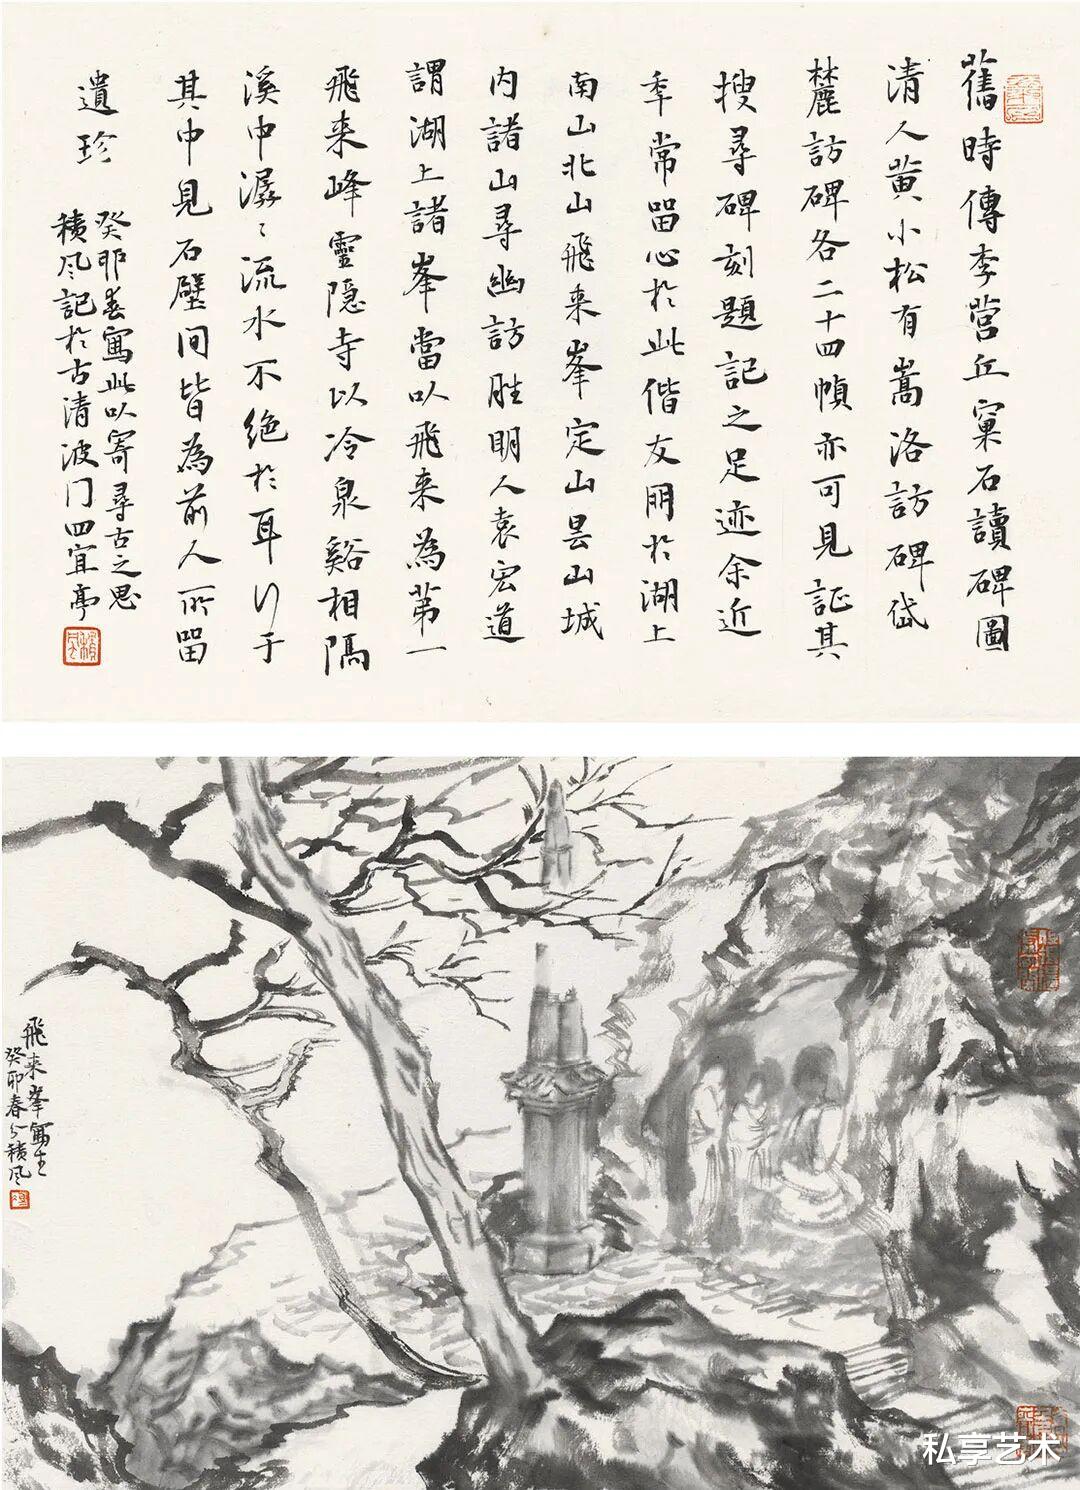 舊時傳李營丘窠石讀碑圖
清人黄小松有嵩洛訪碑岱
麓訪碑各二十四幀亦可見証其
搜尋碑刻題記之足迹余近
年常留心於此偕友朋於湖上
南山北山飛来峯定山昙山城
内諸山尋幽訪胜明人袁宏道
謂湖上諸峯當以飛来為第一
飛来峰靈隐寺以冷泉谿相隔
溪中潺々流水不絶於耳行于
其中見石壁间皆為前人所留
遺珍
癸卯春寫此以寄尋古之思
積风記於古清波门四宜亭
飛来峯寫生
癸卯春分積风
私享艺术